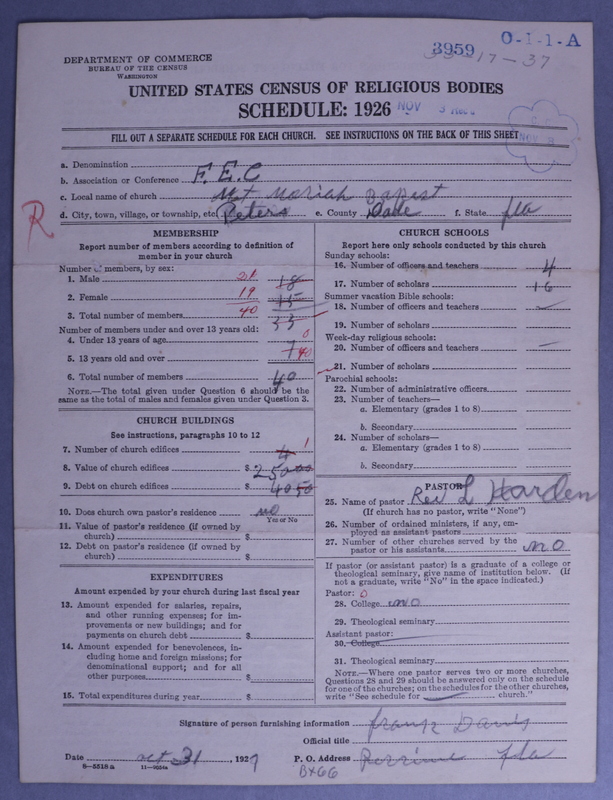 3959 0-1-1-A
17-37
DEPARTMENT OF COMMERCE
BUREAU OF THE CENSUS
WASHINGTON
UNITED STATES CENSUS OF RELIGIOUS BODIES
SCHEDULE: 1926 NOV
FILL OUT A SEPARATE SCHEDULE FOR EACH CHURCH. SEE INSTRUCTIONS ON THE BACK OF THIS SHEET
a. Denomination
b. Association or Conference F. E. C
c. Local name of church Mt Moriah Baptist
d. City, town, village, or township, etc. Peters e. County Dade f. State fla
R
MEMBERSHIP
Report number of members according to definition of
member in your church
Number of members, by sex:
1. Male 21 18
2. Female 19 15
3. Total number of members 40 33
Number of members under and over 13 years old:
4. Under 13 years of age 0
5. 13 years old and over 7 40
6. Total number of members 40
NOTE.—The total given under Question 6 should be the
same as the total of males and females given under Question 3.
CHURCH BUILDINGS
See instructions, paragraphs 10 to 12
7. Number of church edifices 4 1
8. Value of church edifices $ 25000
9. Debt on church edifices $ 4050
10. Does church own pastor's residence no
Yes or No
11. Value of pastor's residence (if owned by
church) $
12. Debt on pastor's residence (if owned by
church) $
EXPENDITURES
Amount expended by your church during last fiscal year
13. Amount expended for salaries, repairs,
and other running expenses; for im-
provements or new buildings; and for
payments on church debt $
14. Amount expended for benevolences, in-
cluding home and foreign missions; for
denominational support; and for all
other purposes $
15. Total expenditures during year $
CHURCH SCHOOLS
Report here only schools conducted by this church
Sunday schools:
16. Number of officers and teachers 4
17. Number of scholars 16
Summer vacation Bible schools:
18. Number of officers and teachers
19. Number of scholars
Week-day religious schools:
20. Number of officers and teachers
21. Number of scholars
Parochial schools:
22. Number of administrative officers
23. Number of teachers—
a. Elementary (grades 1 to 8)
b. Secondary
24. Number of scholars—
a. Elementary (grades 1 to 8)
b. Secondary
PASTOR
25. Name of pastor Rev L Harden
(If church has no pastor, write "None")
26. Number of ordained ministers, if any, em-
ployed as assistant pastors
27. Number of other churches served by the
pastor or his assistants no
If pastor (or assistant pastor) is a graduate of a college or
theological seminary, give name of institution below. (If
not a graduate, write "No" in the space indicated.)
Pastor: 0
28. College no
29. Theological seminary
Assistant pastor:
30. College
31. Theological seminary
NOTE.—Where one pastor serves two or more churches,
Questions 28 and 29 should be answered only on the schedule
for one of the churches; on the schedules for the other churches,
write "See schedule for church."
Signature of person furnishing information
Official title
Date oct 31, 1927 P. O. Address Perrine fla
8—5518a 11—9264a BX66